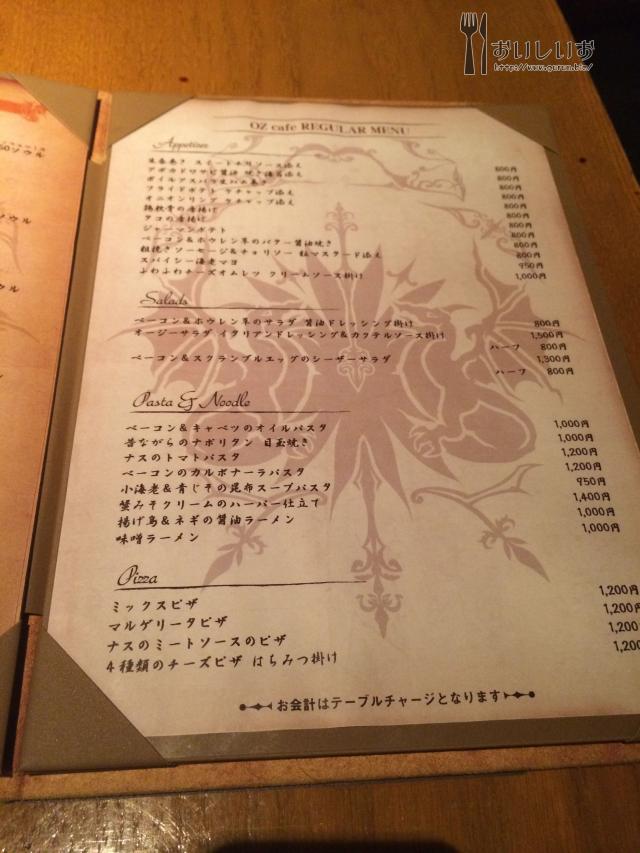 おいしいお
http://www.gurun.biz/
OZ cafe REGULAR MENU
Appetizer
生春巻き スイートチリソース添え 800円
アボカドワサビ醤油 焼き海苔添え 800円
ボイルアスパラ生ハム巻き 800円
フライドポテト ケチャップ添え 800円
オニオンリング ケチャップ添え 800円
鶏軟骨の唐揚げ 800円
タコの唐揚げ 800円
ジャーマンポテト 800円
ベーコン&ホウレン草のバター醤油焼き 800円
粗挽きソーセージ&チョリソー 粒マスタード添え
スパイシー海老マヨ 950円
ふわふわチーズオムレツ クリームソース掛け 1,000円
Salads
ベーコン&ホウレン草のサラダ 醤油ドレッシング掛け 800円
オージーサラダ イタリアンドレッシング&カクテルソース掛け 1,500円
ハーフ 800円
ベーコン&スクランブルエッグのシーザーサラダ 1,300円
ハーフ 800円
Pasta & Noodle
ベーコン&キャベツのオイルパスタ 1,000円
昔ながらのナポリタン 目玉焼き 1,000円
ナスのトマトパスタ 1,200円
ベーコンのカルボナーラパスタ 1,200円
小海老&青じその昆布スープパスタ 950円
蟹みそクリームのハーバー仕立て 1,400円
揚げ鳥&ネギの醤油ラーメン 1,000円
味噌ラーメン 1,000円
Pizza
ミックスピザ 1,200円
マルゲリータピザ 1,200円
ナスのミートソースのピザ 1,200
4種類のチーズピザ はちみつ掛け 1,200
お会計はテーブルチャージとなります